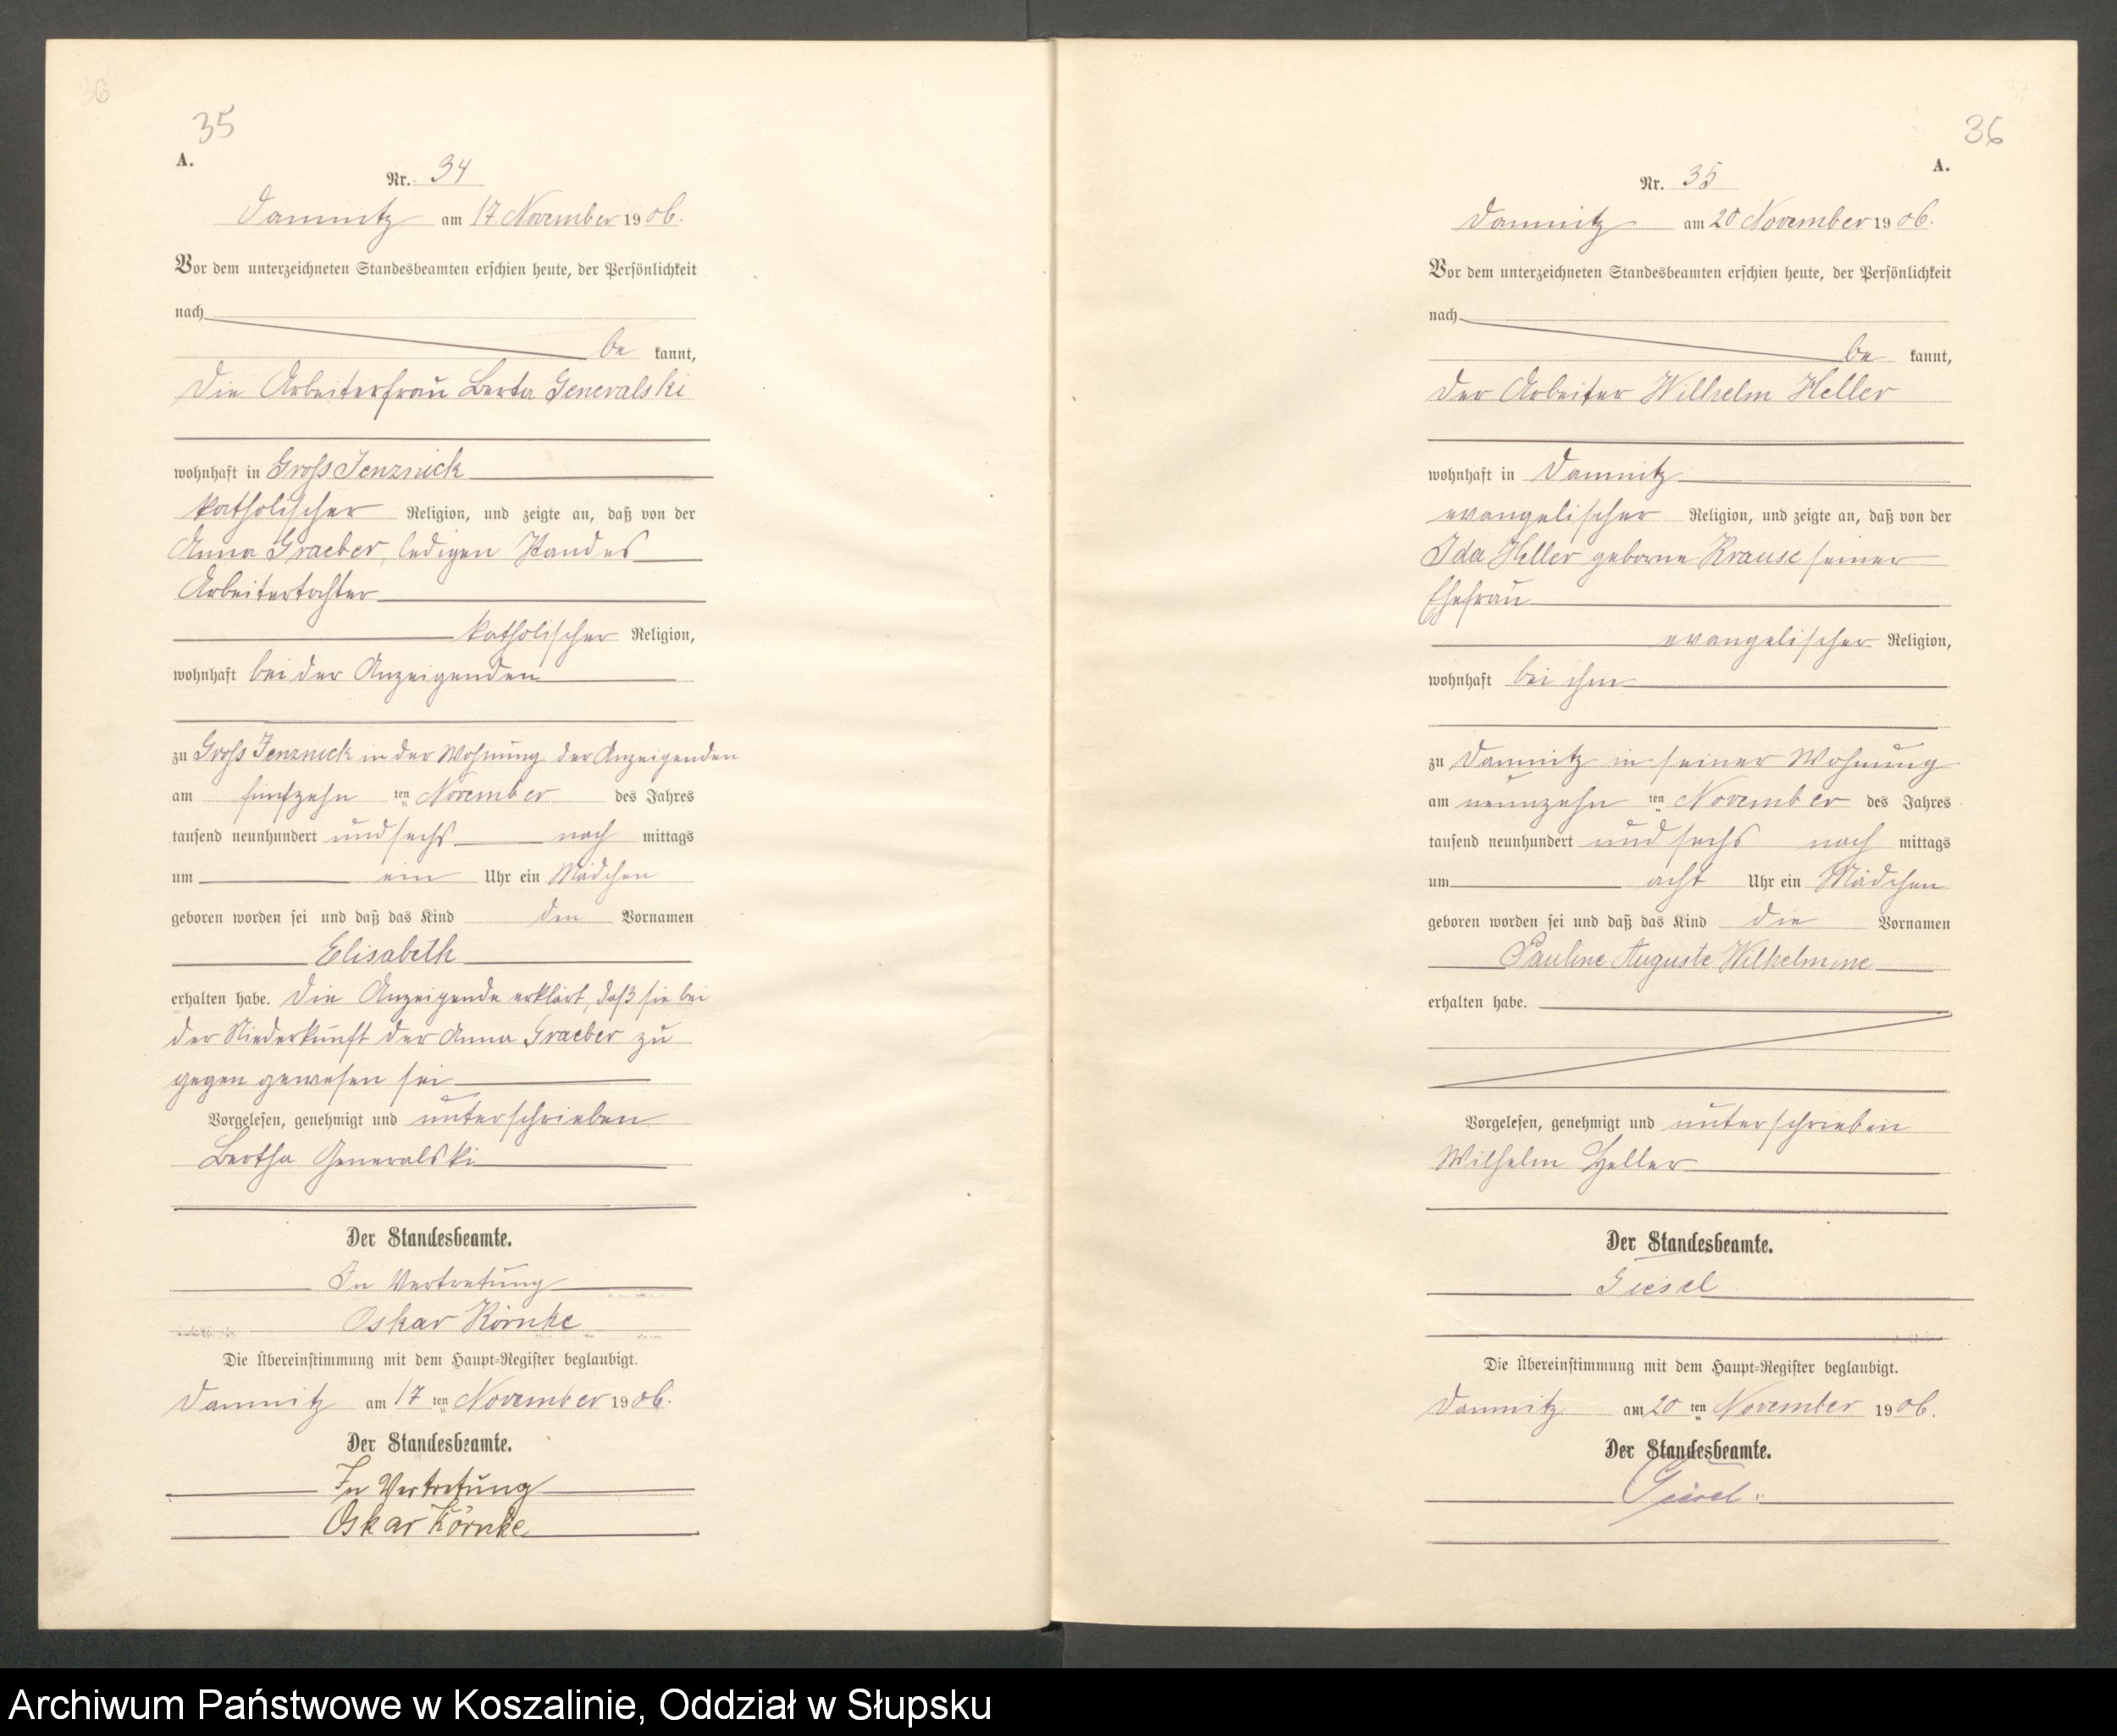 35
A.
Nr. 34
Damnitz am 17. November 1906.
Vor dem unterzeichneten Standesbeamten erschien heute, der Persönlichkeit
nach
be kannt,
die Arbeiterfrau Berta Generalski
wohnhaft in Gross Jenznick
katholischer Religion, und zeigte an, daß von der
Anna Graeber, ledigen Standes
Arbeitertochter
katholischer Religion,
wohnhaft bei der Anzeigenden
zu Gross Jenznick in der Wohnung der Anzeigenden
am fünfzehn ten November des Jahres
tausend neunhundert und sechs nach mittags
um ein Uhr ein Mädchen
geboren worden sei und daß das Kind den Vornamen
Elisabeth
erhalten habe. Die Anzeigende erklärt, daß sie bei
der Niederkunft der Anna Graeber zu
gegen gewesen sei
Vorgelesen, genehmigt und unterschrieben
Bertha Generalski
Der Standesbeamte.
In Vertretung
Oskar Körnke
Die Übereinstimmung mit dem Haupt-Register beglaubigt.
Damnitz am 17 ten November 1906.
Der Standesbeamte.
In Vertretung
Oskar Körnke
36
A.
Nr. 35
Damnitz am 20 November 1906.
Vor dem unterzeichneten Standesbeamten erschien heute, der Persönlichkeit
nach
be kannt,
der Arbeiter Wilhelm Heller
wohnhaft in Damnitz
evangelischer Religion, und zeigte an, daß von der
Ida Heller geborne Krause seiner
Ehefrau
evangelischer Religion,
wohnhaft bei ihm
zu Damnitz in seiner Wohnung
am neunzehn ten November des Jahres
tausend neunhundert und sechs nach mittags
um acht Uhr ein Mädchen
geboren worden sei und daß das Kind die Vornamen
Pauline Auguste Wilhelmine
erhalten habe.
Vorgelesen, genehmigt und unterschrieben
Wilhelm Heller
Der Standesbeamte.
Giesel
Die Übereinstimmung mit dem Haupt-Register beglaubigt.
Damnitz am 20 ten November 1906.
Der Standesbeamte.
Giesel
Archiwum Państwowe w Koszalinie, Oddział w Słupsku